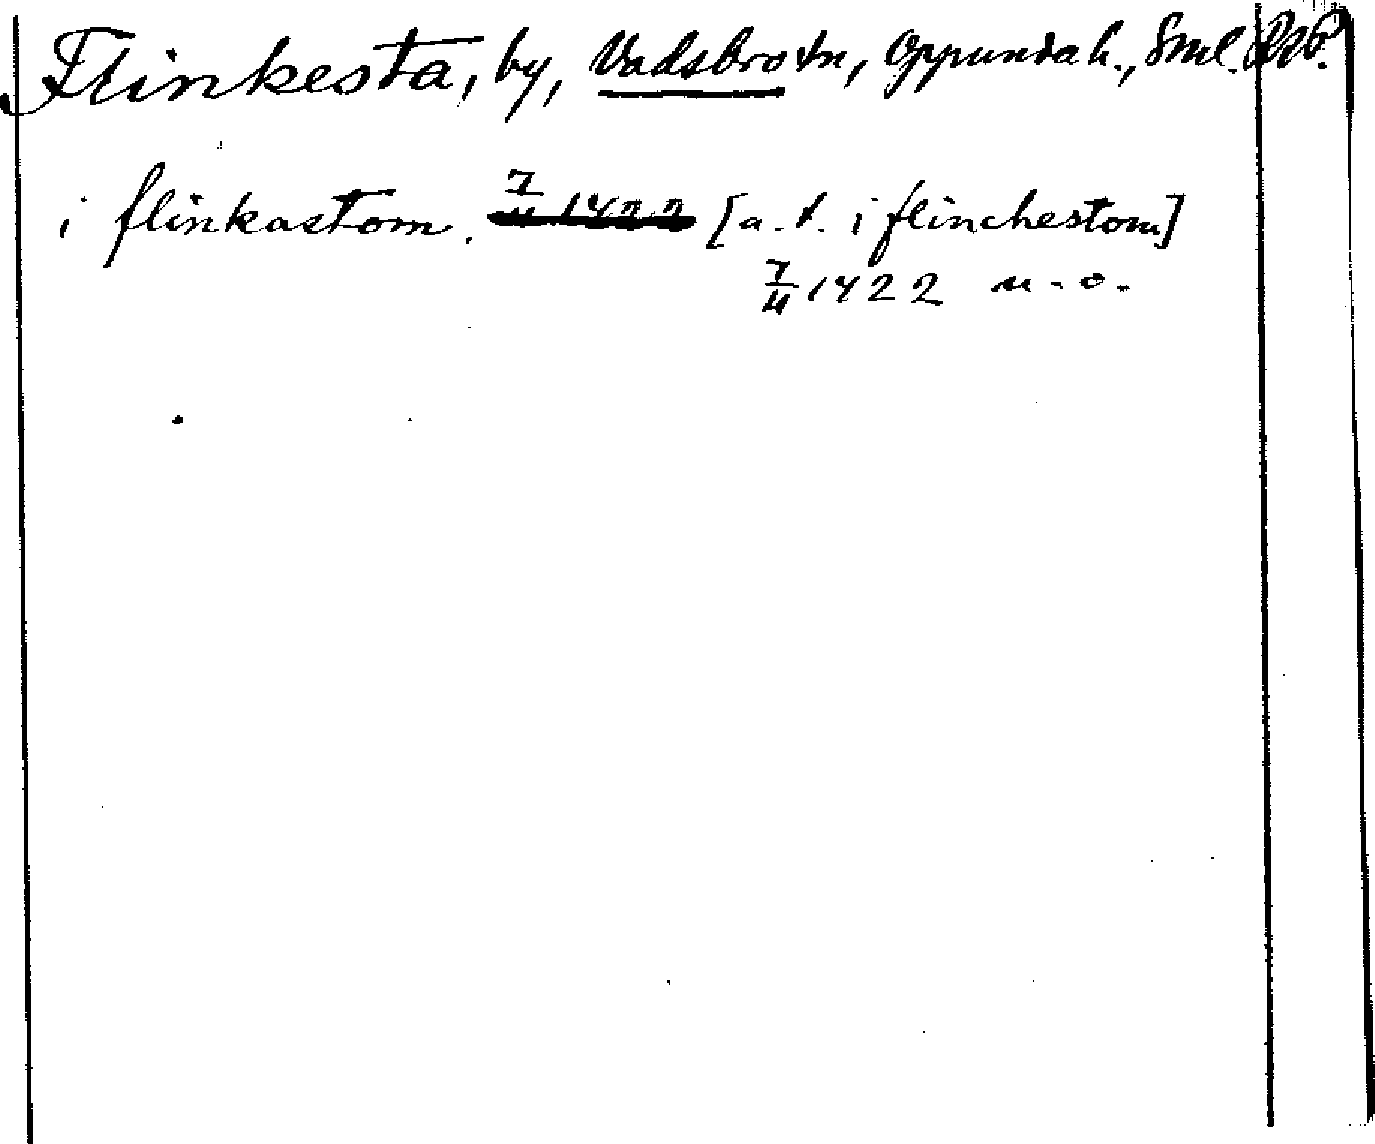 Flinkesta, by, Vadsbro sn, Oppunda h., Sml.
i flinkastom. 7/4 1422 [a. t. i flinchestom]
7/4 1422 u. o.